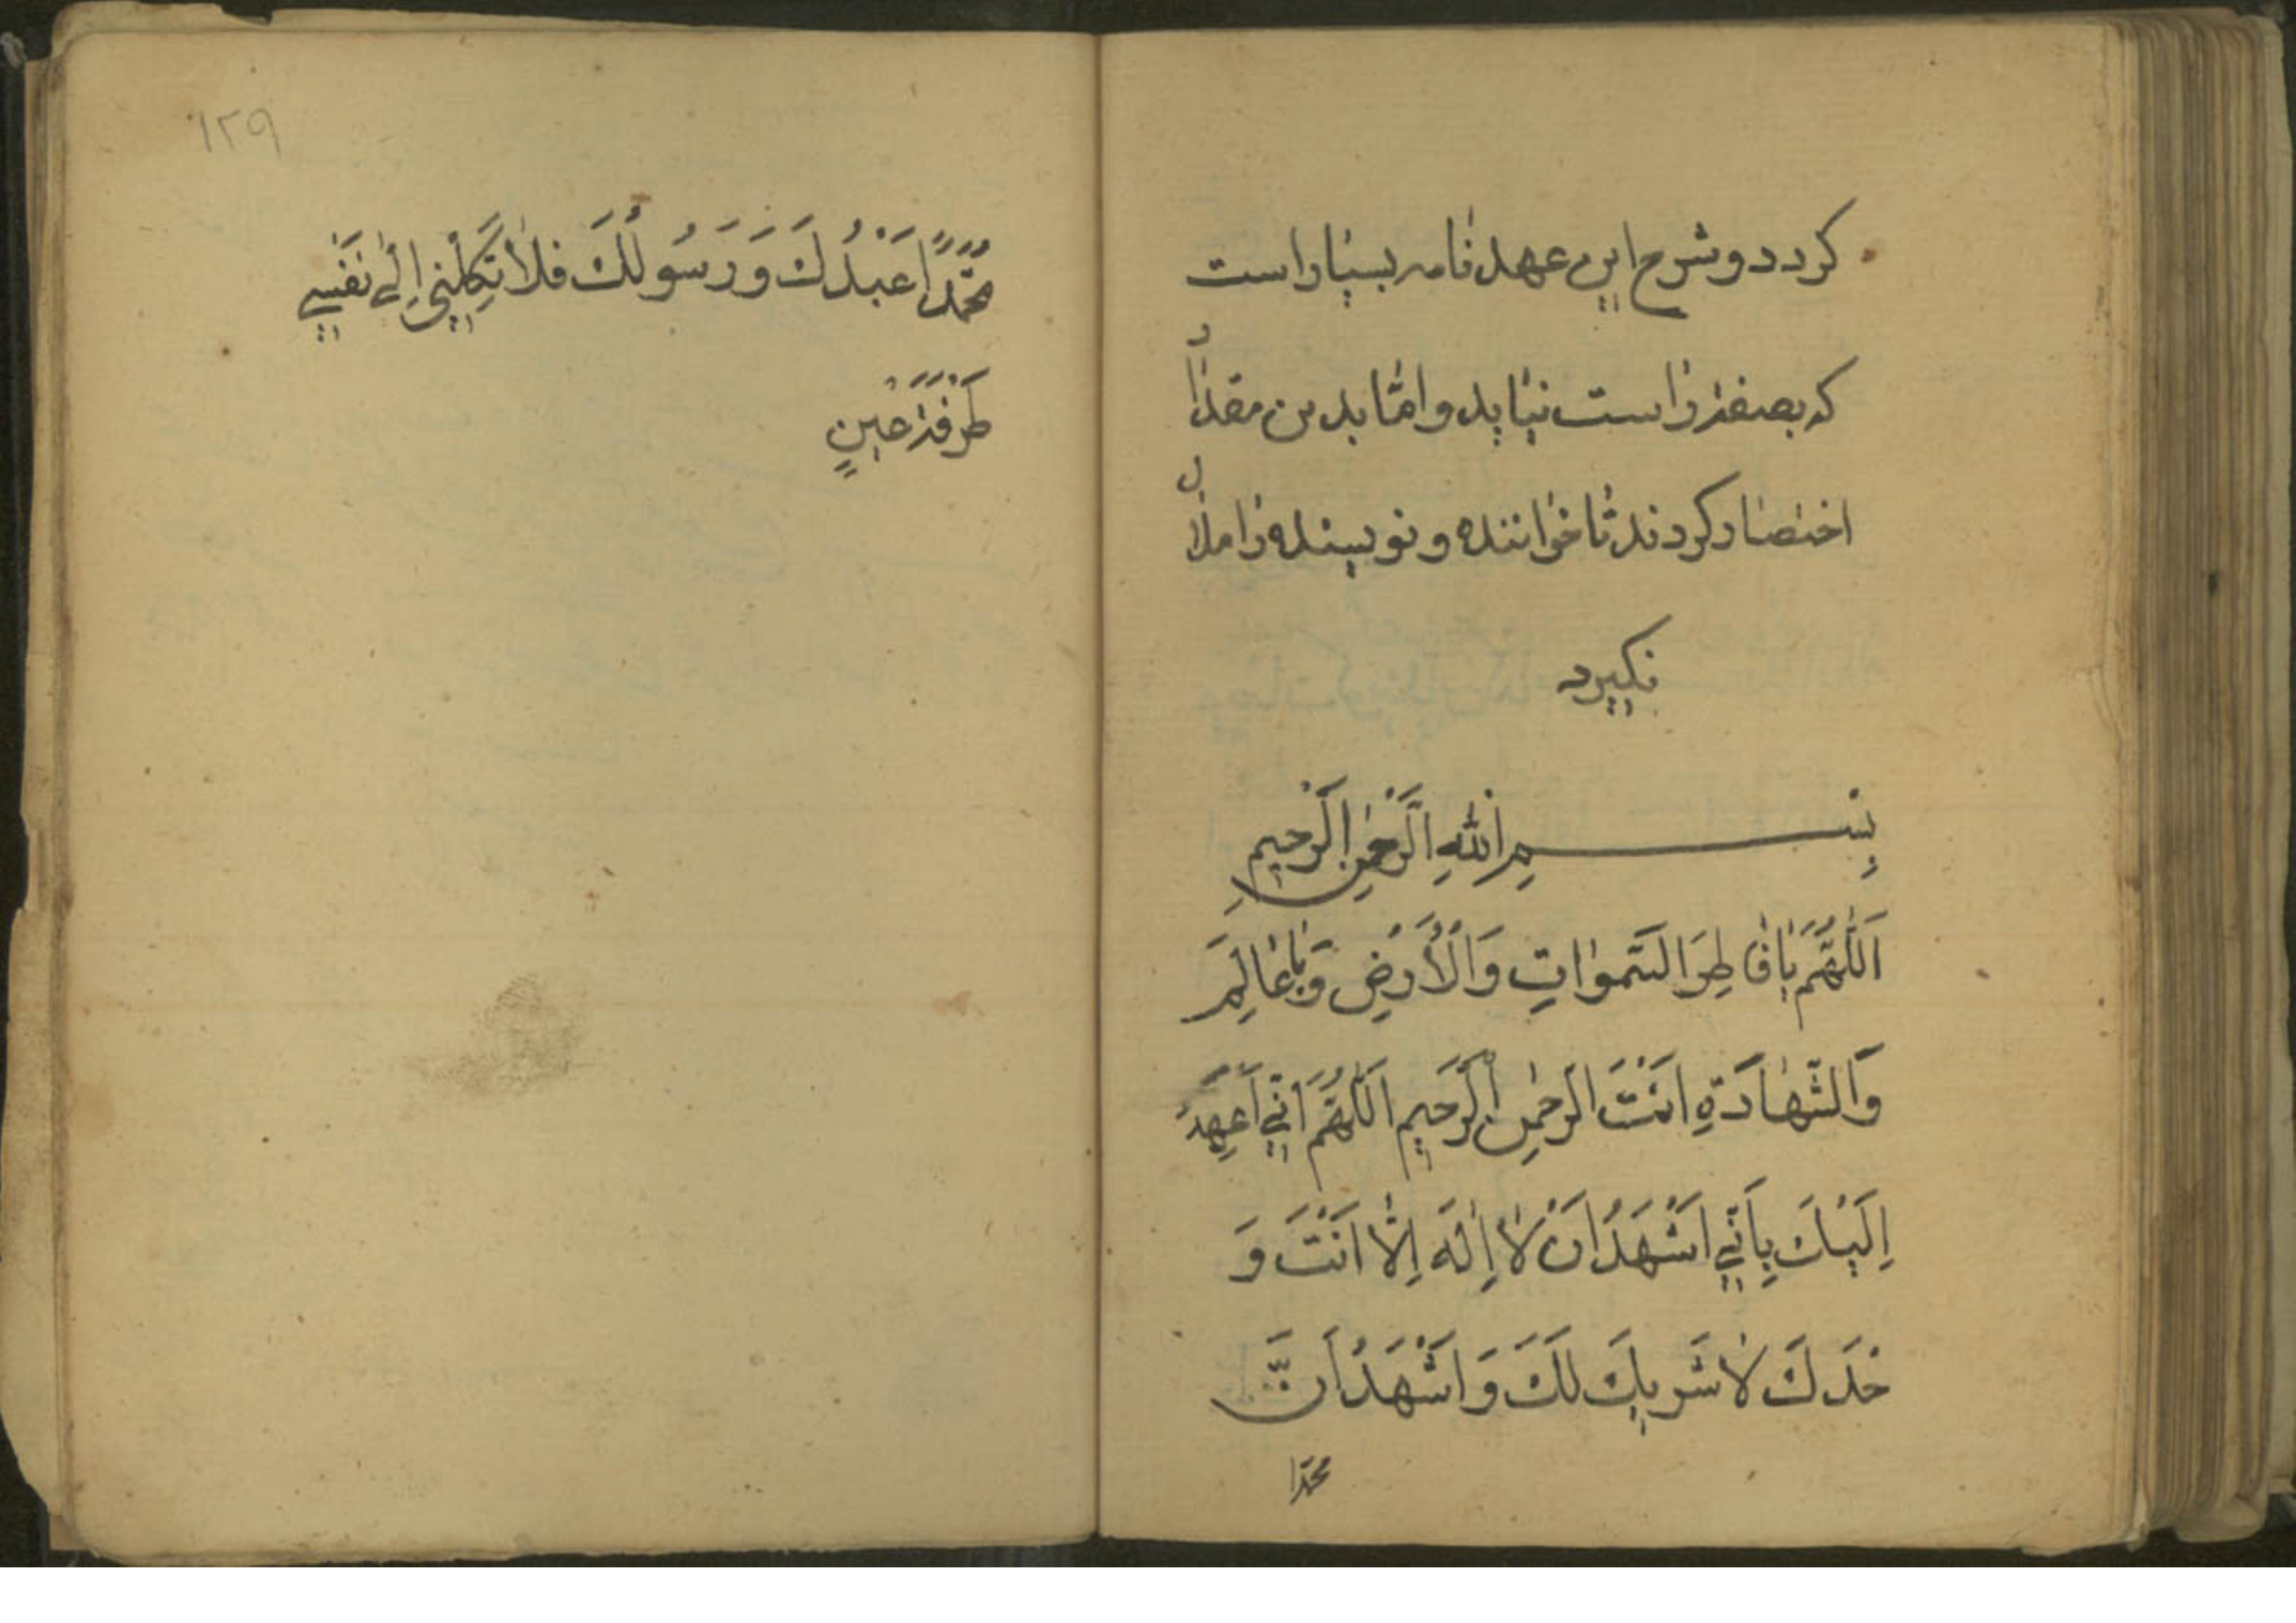 كردد و شرح اين عهد نامه بسيار است
كه بصفت راست نيايد و امّا بدين مقدار
اختصار كردند تا خواننده و نويسنده را ملال
نكيرد
بِسْمِ اللهِ الرَّحْمٰنِ الرَّحِيمِ
اَللّٰهُمَّ يَا فَاطِرَ السَّمٰوَاتِ وَالْأَرْضِ وَيَا عَالِمَ
وَالشَّهَادَةِ اَنْتَ الرَّحْمٰنُ الرَّحِيمِ اَللّٰهُمَّ اِنّي اَعْهَدُ
اِلَيْكَ بِاَنّي اَشْهَدُ اَنْ لَا اِلٰهَ اِلَّا اَنْتَ وَ
حْدَكَ لَا شَرِيكَ لَكَ وَ اَشْهَدُ اَنَّ
محمدا
١٢٩
مُحَمَّدًا عَبْدُكَ وَرَسُولُكَ فَلَا تَكِلْنِي اِلٰى نَفْسِي
طَرْفَةَ عَيْنٍ